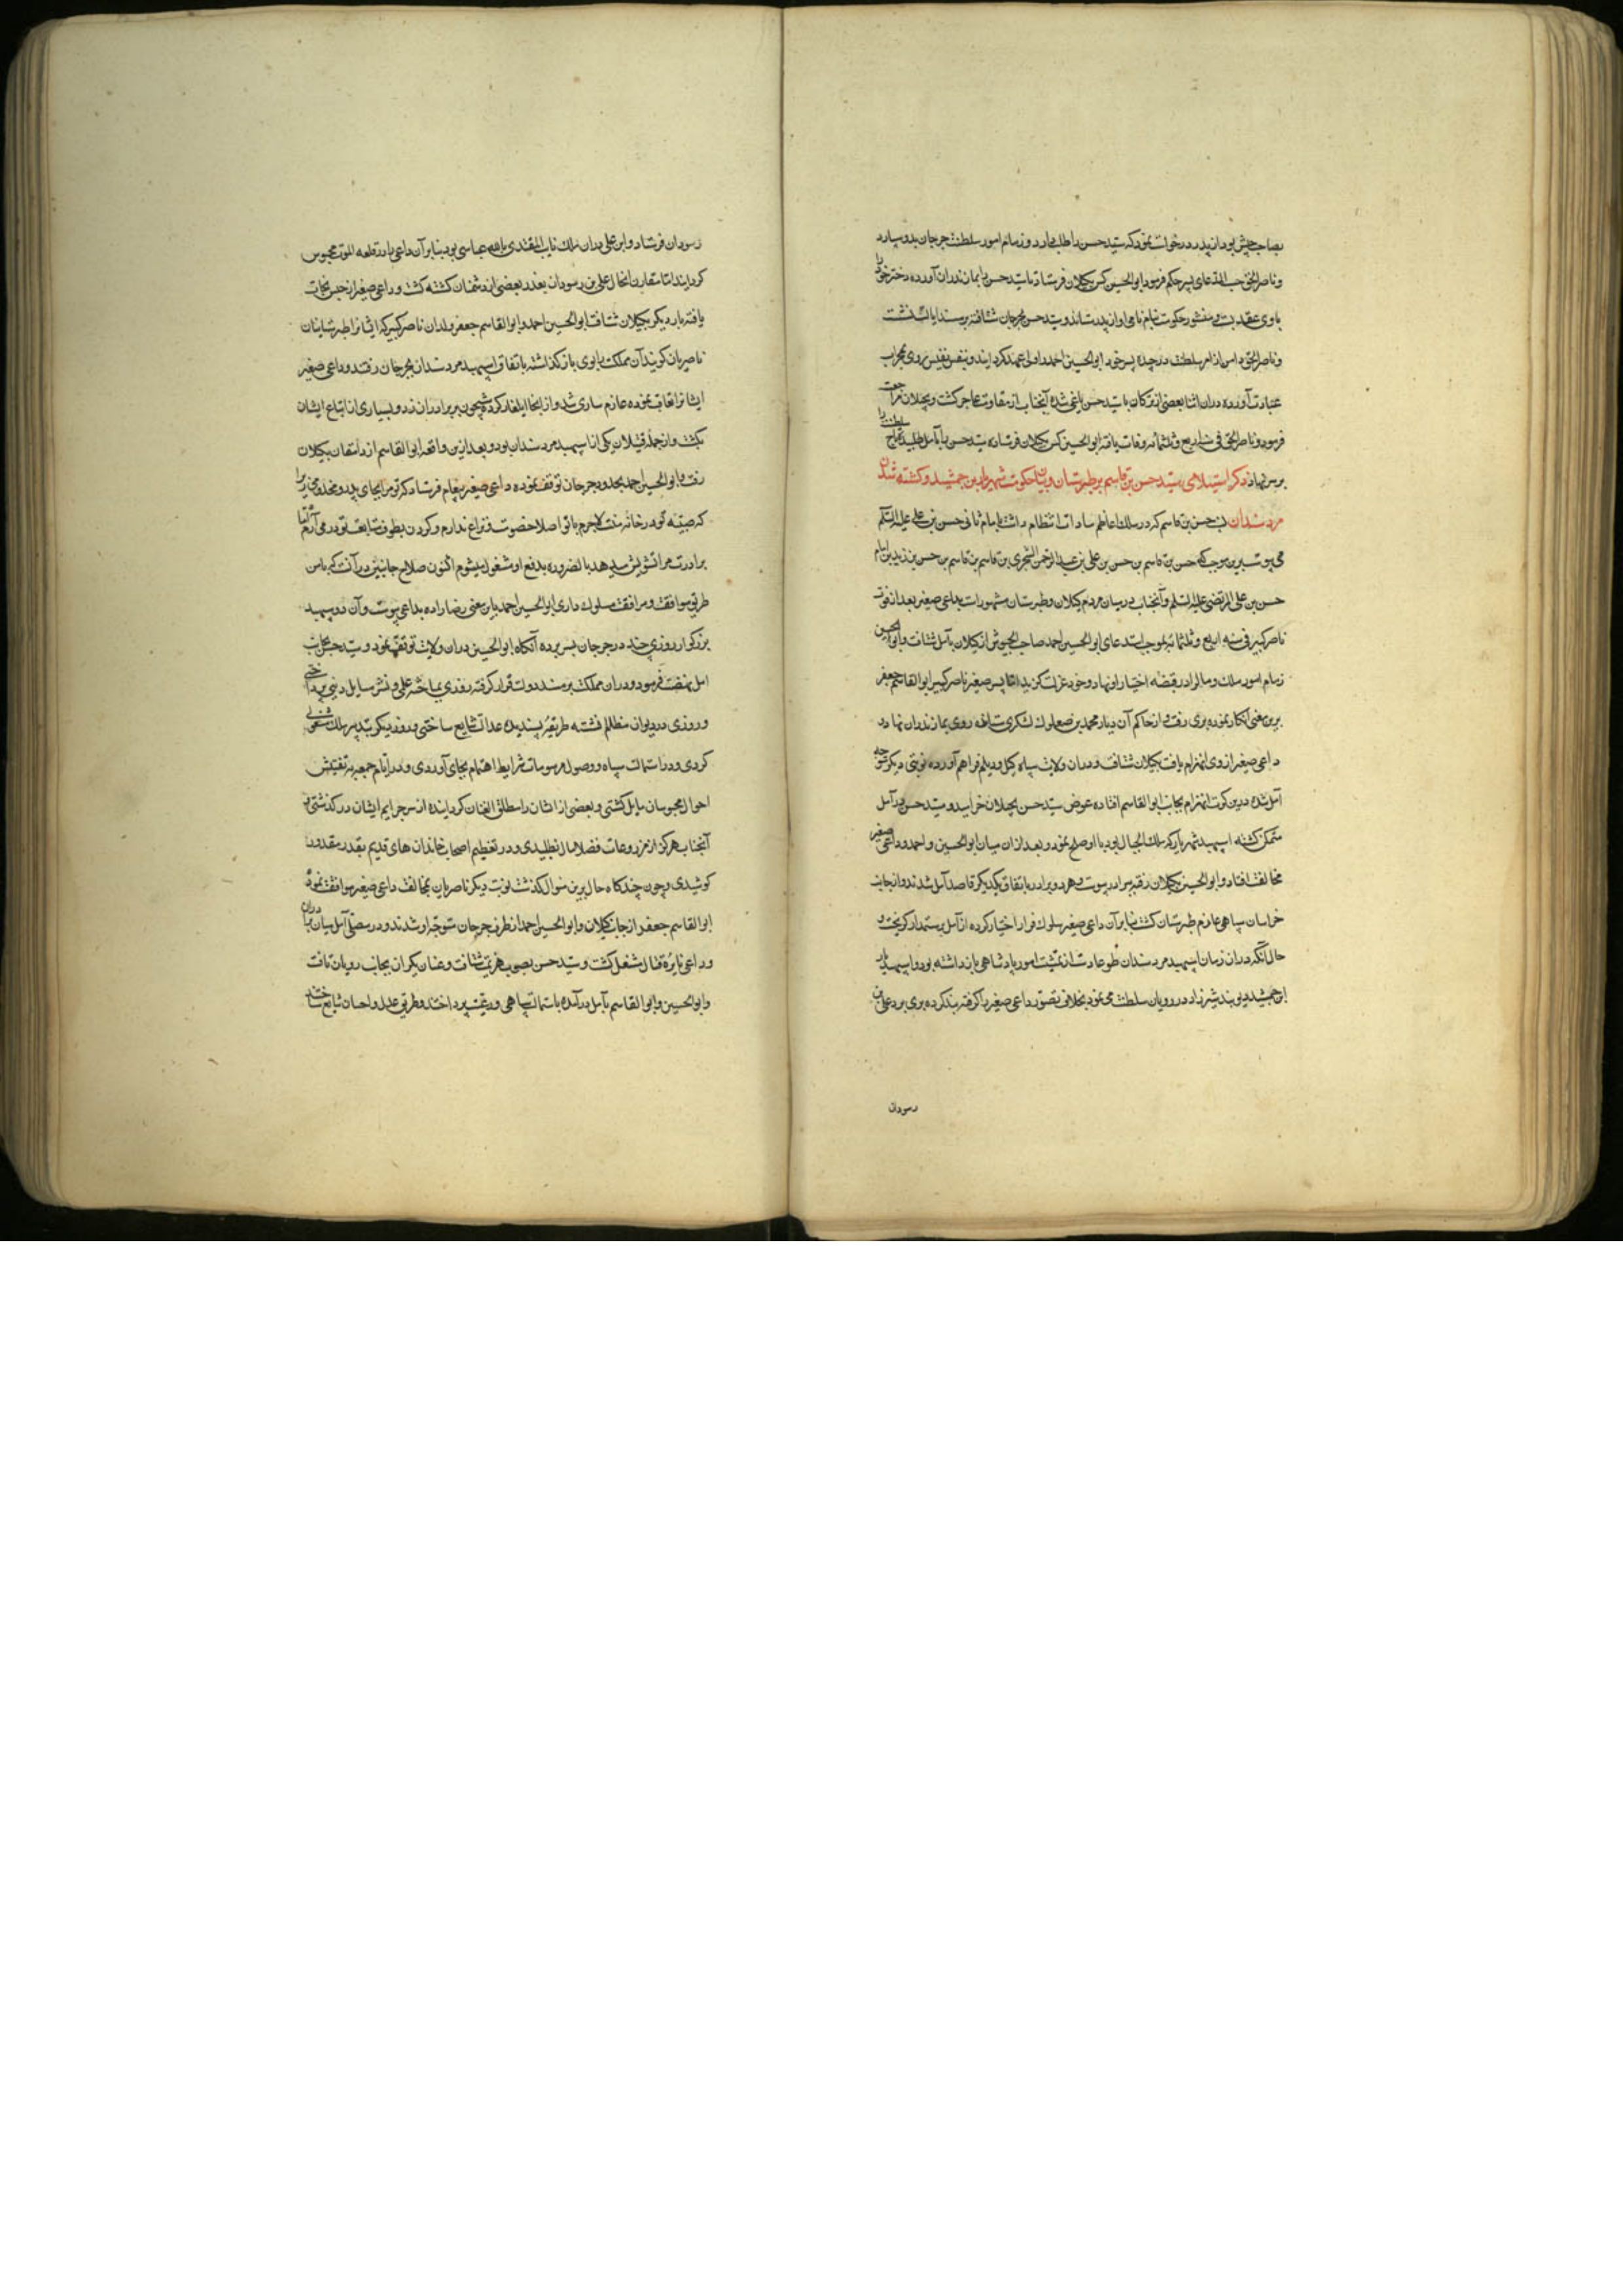 بصاحب جیش بود از پدر درخواست نمود که سید حسن را طلب دارد و زمام امور سلطنت جرجان بدو سپارد
و ناصر الحق حسب المدعای پسر حکم فرمود ابو الحسین کس بکیلان فرستاد تا سید حسن را بمازندران آورده دختر خود را
با وی عقد بست و منشور حکومت بنام نامی او از پدر ستاند و سید حسن بجرجان شتافته بر مسند ایالت نشست
و ناصر الحق دامن از امر سلطنت درچیده پسر خود ابو الحسین احمد را ولی عهد کردانید و بنفس نفیس روی بمحراب
عبادت آورد و در ان اثنا بعضی از ترکان با سید حسن یاغی شده آنجناب از مقاومت عاجز کشت و بکیلان مراجعت
فرمود و ناصر الحق فی سنه اربع و ثلثمائه وفات یافته ابو الحسین کس بکیلان فرستاده سید حسن را بآمل طلبید و تاج سلطنت را
بر سرش نهاد ذکر استیلای سید حسن بن قاسم بر طبرستان و بیان حکومت شهریار بن جمشید و کشته شدن
مردسندان نسب حسن بن قاسم که در سلک اعاظم سادات انتظام داشت بامام ثانی حسن بن علی علیه السلم
می پیوست برین موجب که حسن بن قاسم بن حسن بن علی بن عبد الرحمن الشجری بن قاسم بن حسن بن زید بن امام
حسن بن علی المرتضی علیه السلم و آنجناب در میان مردم کیلان و طبرستان مشهورست بداعی صغیر بعد از فوت
ناصر کبیر فی سنه اربع و ثلثمائه بموجب استدعای ابو الحسین احمد صاحب الجیوش از کیلان بآمل شتافت و ابو الحسین
زمام امور ملک و مال را در قبضه اختیار او نهاد و خود عزلت کزید اما پسر صغیر ناصر کبیر ابو القاسم جعفر
برین معنی انکار نموده بری رفت و از حاکم آن دیار محمد بن صعلوک لشکری ستاند روی بمازندران نهاد
داعی صغیر از وی انهزام یافت بکیلان شتافت و در ان ولایت سپاه کیل و دیلم فراهم آورده نوبتی دیکر متوجه
آمل شد درین کرت انهزام بجانب ابو القاسم افتاده عوض سید حسن بکیلان خرامید و سید حسن در آمل
متمکن کشته اسپهبد شهریار که ملک الجبال بود با او صلح نمود و بعد از ان میان ابو الحسین احمد و داعی صغیر
مخالفت افتاد و ابو الحسین بکیلان رفته ببرادر پیوست و هر دو برادر باتفاق یکدیکر قاصد آمل شدند و از جانب
خراسان سپاهی عازم طبرستان کشت بنابرآن داعی صغیر سلوک فرار اختیار کرده از آمل برستمدار کریخت و
حال آنکه در ان زمان اسپهبد مردسندان طوعا دست از تمشیت امور پادشاهی بازداشته بود و اسپهبد شهریار
ابن جمشید دیوبند شیرزاد در رویان سلطنت می نمود بخلاف تصور داعی صغیر را کرفته بند کرده بری برد علی بن
وسودان
وسودان فرستاد و ابن علی در ان ملک نایب المقتدی بالله عباسی بود بنابرآن داعی را در قلعه الموت محبوس
کردانید اما مقارن انحال علی بن وسودان بغدر بعضی از دشمنان کشته کشت و داعی صغیر از حبس نجات
یافته بار دیکر بکیلان شتافت ابو الحسین احمد و ابو القاسم جعفر ولدان ناصر کبیر که ایشانرا طبرستانیان
ناصریان کویند آن مملکت را بوی باز کذاشته باتفاق اسپهبد مردسندان بجرجان رفتند و داعی صغیر
ایشانرا تعاقب نموده عازم ساری شد و از انجا ایلغار کرده شبیخون بر برادران زد و بسیاری از اتباع ایشان
بکشت و از جمله قتیلان یکی اسپهبد مردسندان بود و بعد ازین واقعه ابو القاسم از دامغان بکیلان
رفت و ابو الحسین احمد بحدود جرجان توقف نموده داعی صغیر پیغام فرستاد که تو مرا بجای پدر و مخدومی زیرا
که صبیه تو در خانه منست لاجرم با تو اصلا خصومت و نزاع ندارم و کردن بطوق متابعت تو درمی آرم اما
برادرت مرا تشویش میدهد بالضروره بدفع او مشغول میشوم اکنون صلاح جانبین در آنست که با من
طریق موافقت و مرافقت مسلوک داری ابو الحسین احمد باین معنی رضا داده بداعی پیوست و آن دو سپهبد
بزرکوار روزی چند در جرجان بسر برده آنکاه ابو الحسین در ان ولایت توقف نمود و سید حسن بجانب
آمل نهضت فرمود و در ان مملکت بر مسند دولت قرار کرفته روزی بمباحثه علمی و نشر مسایل دینی پرداختی
و روزی در دیوان مظالم نشسته طریقه پسندیده عدالت شایع ساختی و روز دیکر بتدبیر ملک مشغولی
کردی و در استمالت سپاه و وصول مرسومات شرایط اهتمام بجای آوردی و در ایام جمعه بتفتیش
احوال محبوسان مایل کشتی و بعضی از ایشان را مطلق العنان کردانیده از سر جرایم ایشان در کذشتی و
آنجناب هرکز از مزروعات فضلا مال نطلبیدی و در تعظیم اصحاب خاندان های قدیم بقدر مقدور
کوشیدی و چون چند کاه حال برین منوال کذشت نوبت دیکر ناصریان بمخالفت داعی صغیر موافقت نموده
ابو القاسم جعفر از جانب کیلان و ابو الحسین احمد از طرف جرجان متوجه او شدند و در مصلی آمل میان برادران
و داعی نایره قتال مشتعل کشت و سید حسن بصوب هزیمت شتافت و عنان یکران بجانب رویان تافت
و ابو الحسین و ابو القاسم بآمل درآمده باستمالت سپاهی و رعیت پرداختند و طریق عدل و احسان شایع ساختند